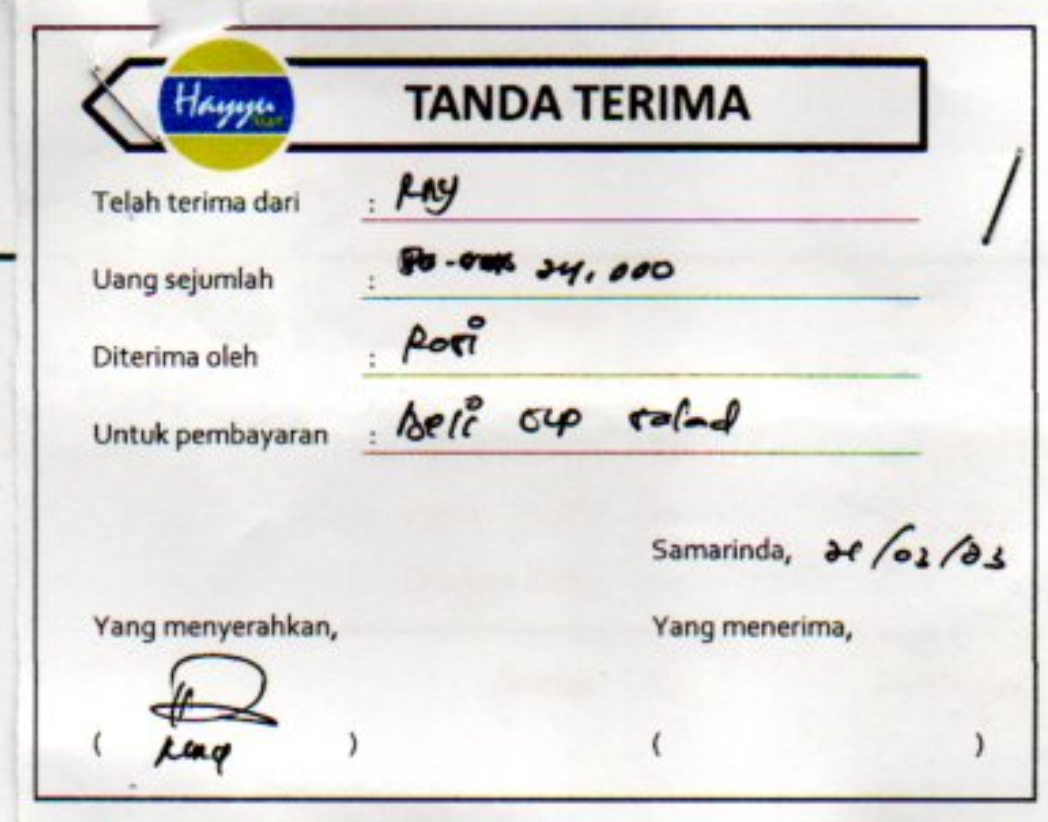 Hayyu
Mart
TANDA TERIMA
Telah terima dari : RAY
Uang sejumlah : 24,000
Diterima oleh : Rosi
Untuk pembayaran : Beli cup salad
Samarinda,
Yang menyerahkan, Yang menerima,
( ) ( )